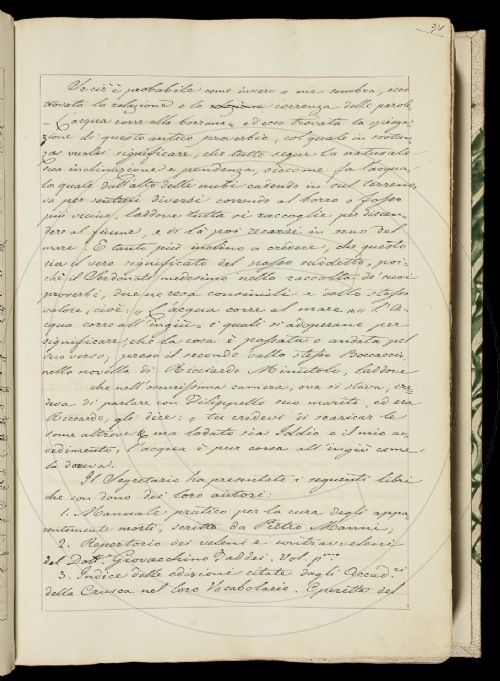 371
Se ciò è probabile come invero a me sembra, ecco
trovata la relazione e la ragione coerenza delle parole
L'acqua corre alla borrana = ed ecco trovata la spiega
zione di questo antico proverbio, col quale in sostan
za vuolsi significare, che tutto segue la naturale
sua inclinazione e pendenza, siccome fa l'acqua,
la quale dall'alto delle nubi cadendo in sul terreno,
va per sentieri diversi correndo al borro o fosso
più vicino, laddove tutta si raccoglie per discen-
dere al fiume, e di là poi recarsi in seno del
mare. E tanto più inclino a credere, che questo
sia il vero significato del passo suddetto, poi-
chè il Cherdonati medesimo nella raccolta de' suoi
proverbi, due ne reca consimili e dello stesso
valore, cioè: "L'acqua corre al mare = " L'a-
qua corre all'ingiù = i quali si adoperano per
significare, che la cosa è passata o andata pel
suo verso; preso il secondo dallo stesso Boccaccio
nella novella di Ricciardo Minutolo, laddove
che nell'oscurissima camera, ove si stava, cre-
deva di parlare con Filippello suo marito, ed era
Ricciardo, gli dice: " tu credevi di scaricar le
some altrove & ma lodato sia Iddio e il mio av-
vedimento, l'acqua è pur corsa all'ingiù come
la doveva.
Il Segretario ha presentato i seguenti libri
che son dono dei loro autori:
1. Manuale pratico per la cura degli appa-
rentemente morti, scritto da Pietro Manni;
2. Repertorio dei veleni e contravveleni
del Dott. Giovacchino Taddei. Vol. pmo
3. Indice delle edizioni citate dagli Accad.ci
della Crusca nel loro Vocabolario. Operetta del